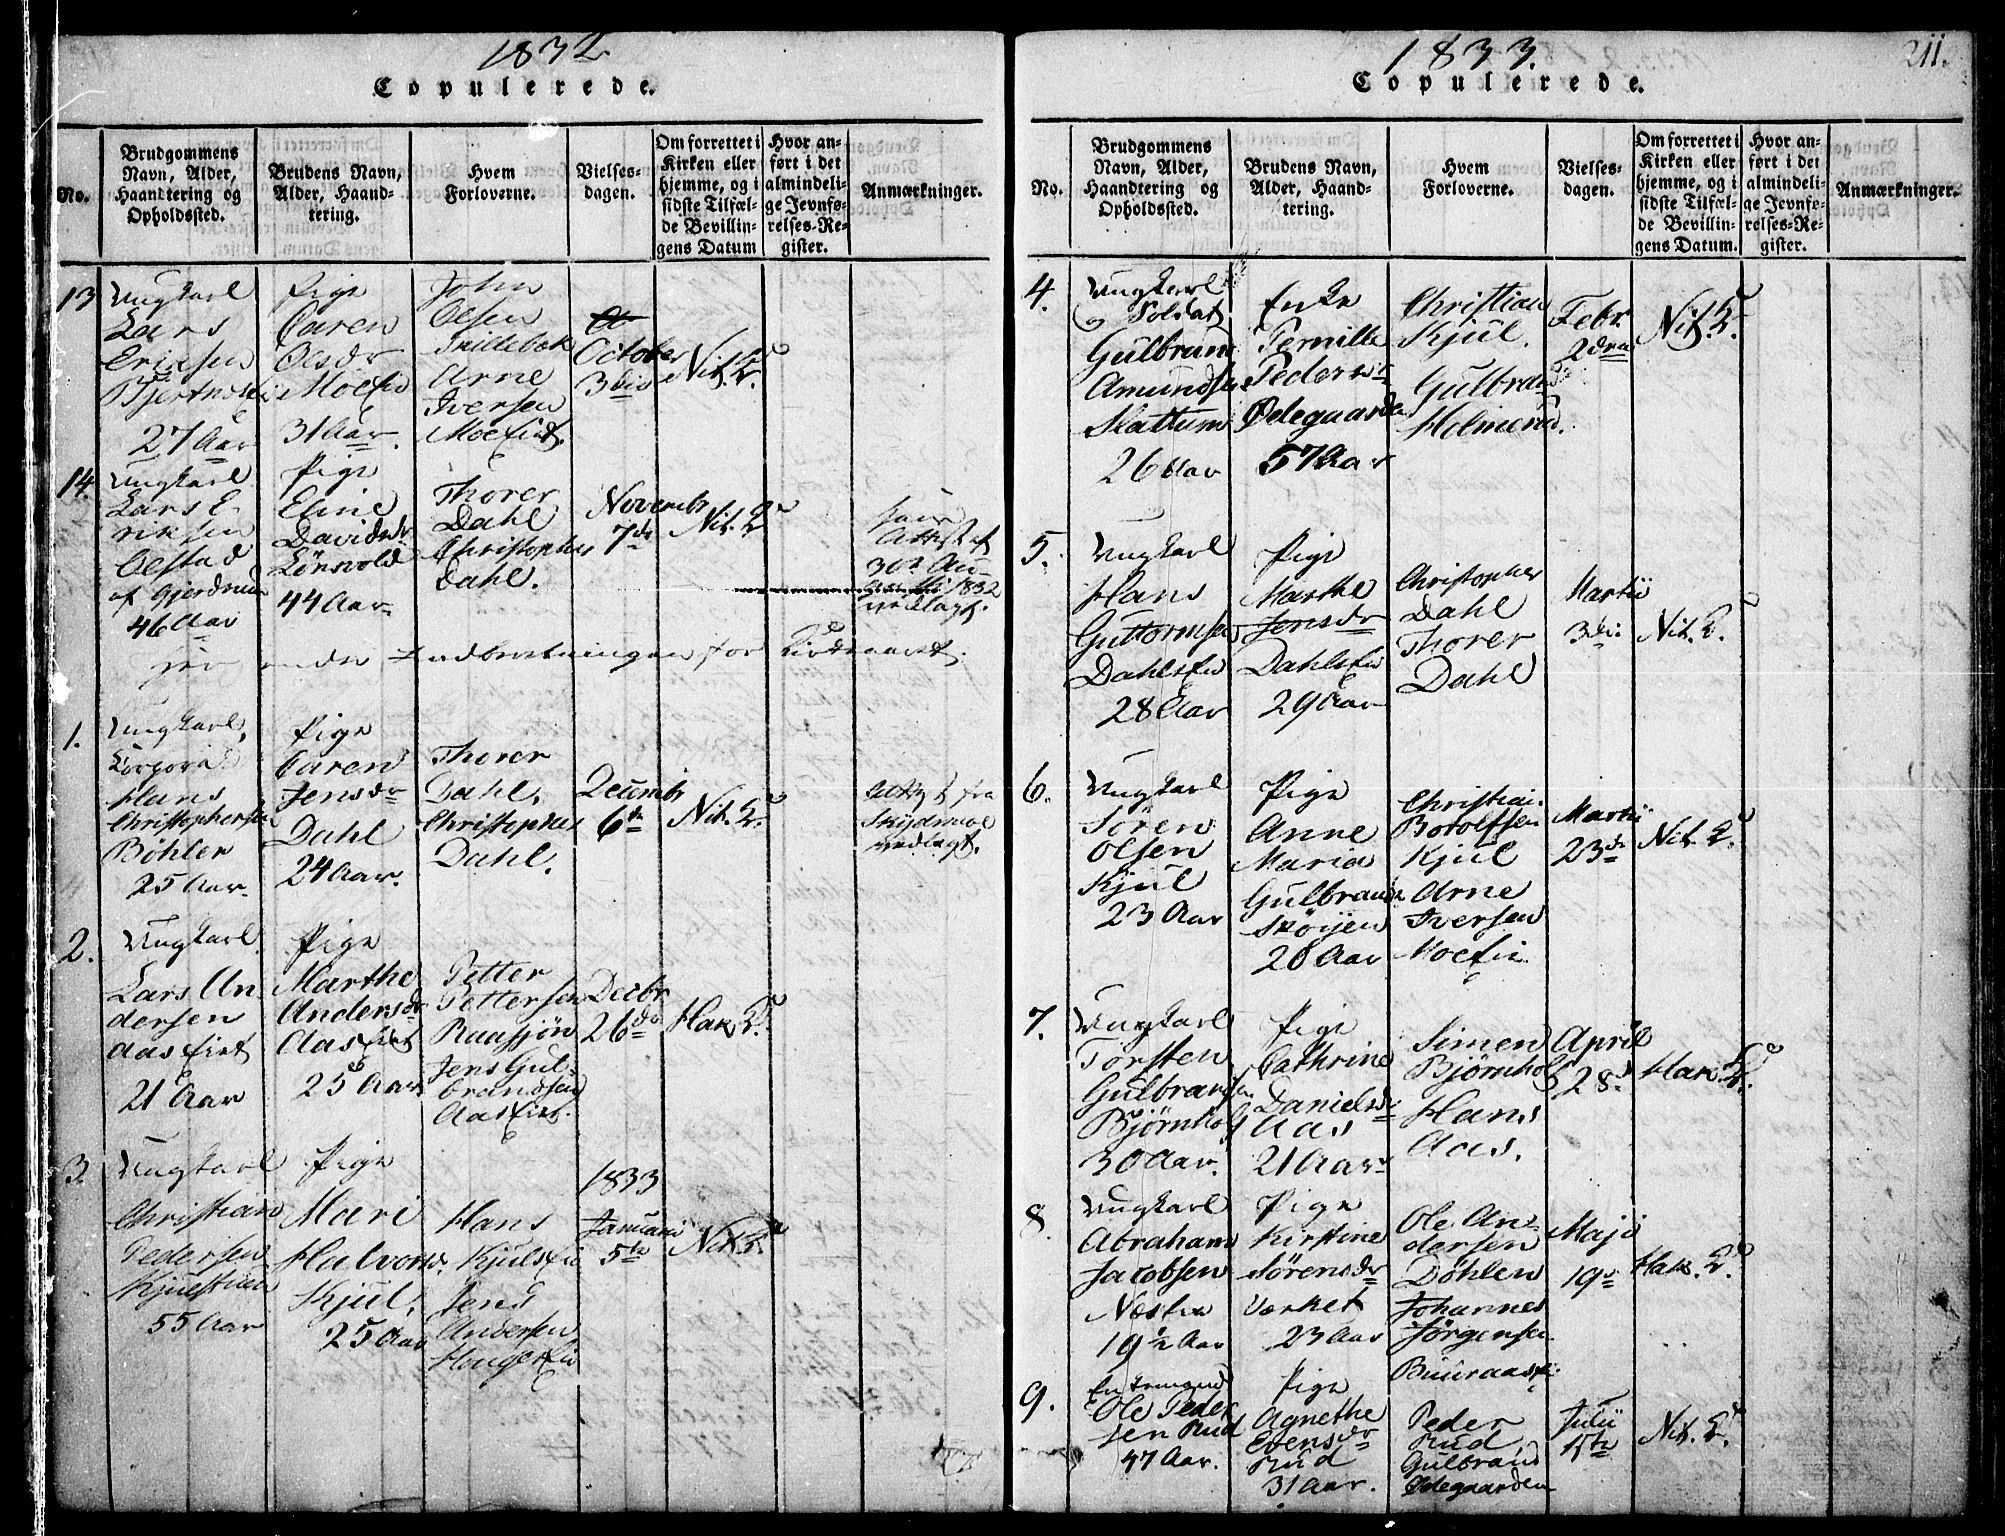 1832
Copulerede.
No.
Brudgommens
Navn, Alder,
Haandtering og
Opholdssted.
Brudens Navn,
Alder, Haand-
tering.
Hvem
Forloverne.
Vielses-
dagen.
Om forrettet i
Kirken eller
hjemme, og i
sidste Tilfæl-
de Bevillin-
gens Datum
Hvor an-
ført i det
almindeli-
ge Jevnfø-
relses-Re-
gister.
Anmærkninger.
13
Ungkarl
Lars
Ericsen
27 Aar
Pige
Caren
Olsdr
Moeeie
31 Aar.
John
Olsen
Arne
Iversen
October
3die
Nit. K.
14.
Ungkarl
Lars E-
riksen
Olstad
af Gjerdrum
46 Aar
Pige
Eline
Davidsdr
Lönvold
44 Aar
Thorer
Dahl
Christopher
Dahl.
Novembr
7de
Nit. K.
Attest
1832
vedlagt.
1.
Ungkarl,
Corporal
Hans
Christophersen
Böhler
25 Aar.
Pige
Caren
Jensdr
Dahl
24 Aar.
Thorer
Dahl.
Christopher
Dahl.
Decembr
6te
Nit. K.
Attest fra
Skydsmoe
vedlagt.
2.
Ungkarl
Lars An
dersen
Aaseiet
21 Aar
Pige
Marthe
Andersdr
Aaseiet
25 Aar
Petter
Pettersen
Raasjön
Jens Gul-
brandsen
Aaseiet.
Decbr
26de
Hak. K.
3.
Ungkarl
Christian
Pedersen
55 Aar
Pige
Mari
Halvorsd.
Kjul.
25 Aar
Hans
Kjulseie
Jens
Andersen
1833
Januarii
5te
Nit. K.
1833.
211.
Copulerede.
No.
Brudgommens
Navn, Alder,
Haandtering og
Opholdssted.
Brudens Navn,
Alder, Haand-
tering.
Hvem
Forloverne.
Vielses-
dagen.
Om forrettet i
Kirken eller
hjemme, og i
sidste Tilfæl-
de Bevillin-
gens Datum.
Hvor an-
ført i det
almindeli-
ge Jevnfø-
relses-Re-
gister.
Anmærkninger.
4.
Ungkarl
og Soldat
Gulbrand
Amundsen
Slattum
26 Aar
Enke
Pernille
Pedersdr
Ödegaarden
57 Aar
Christian
Kjul.
Gulbrand
Holmerud.
Febr.
2dra
Nit. K.
5.
Ungkarl
Hans
Guttormsen
Dahlseie
28 Aar
Pige
Marthe
Jensdr
Dahlseie
29 Aar
Christopher
Dahl
Thorer
Dahl
Martii
3die
Nit. K.
6.
Ungkarl
Sören
Olsen
Kjul
23 Aar
Pige
Anne
Maria
Gulbrandsdr
Skörjen
20 Aar
Christian
Botolfsen
Kjul
Arne
Iversen
Moeeie
Martii
23de
Nit. K.
7.
Ungkarl
Torsten
Gulbrandsen
Björnholt
30 Aar.
Pige
Cathrine
Danielsdr
Aas
21 Aar
Simen
Björnholt
Hans
Aas.
April
28
Hak. K.
8.
Ungkarl
Abraham
Jacobsen
19 1/2 Aar
Pige
Kirstine
Sörensdr
Værket
23 Aar
Ole An-
dersen
Döhlen
Johannes
Jörgensen
Buuraaseie
Maji
19
Hak. K.
9.
Enkemand
Ole Peder
sen Rud
47 Aar.
Pige
Agnethe
Evensdr
Rud
31 Aar.
Peder
Rud.
Gulbrand
Ödegaarden
Julii
Nit. K.